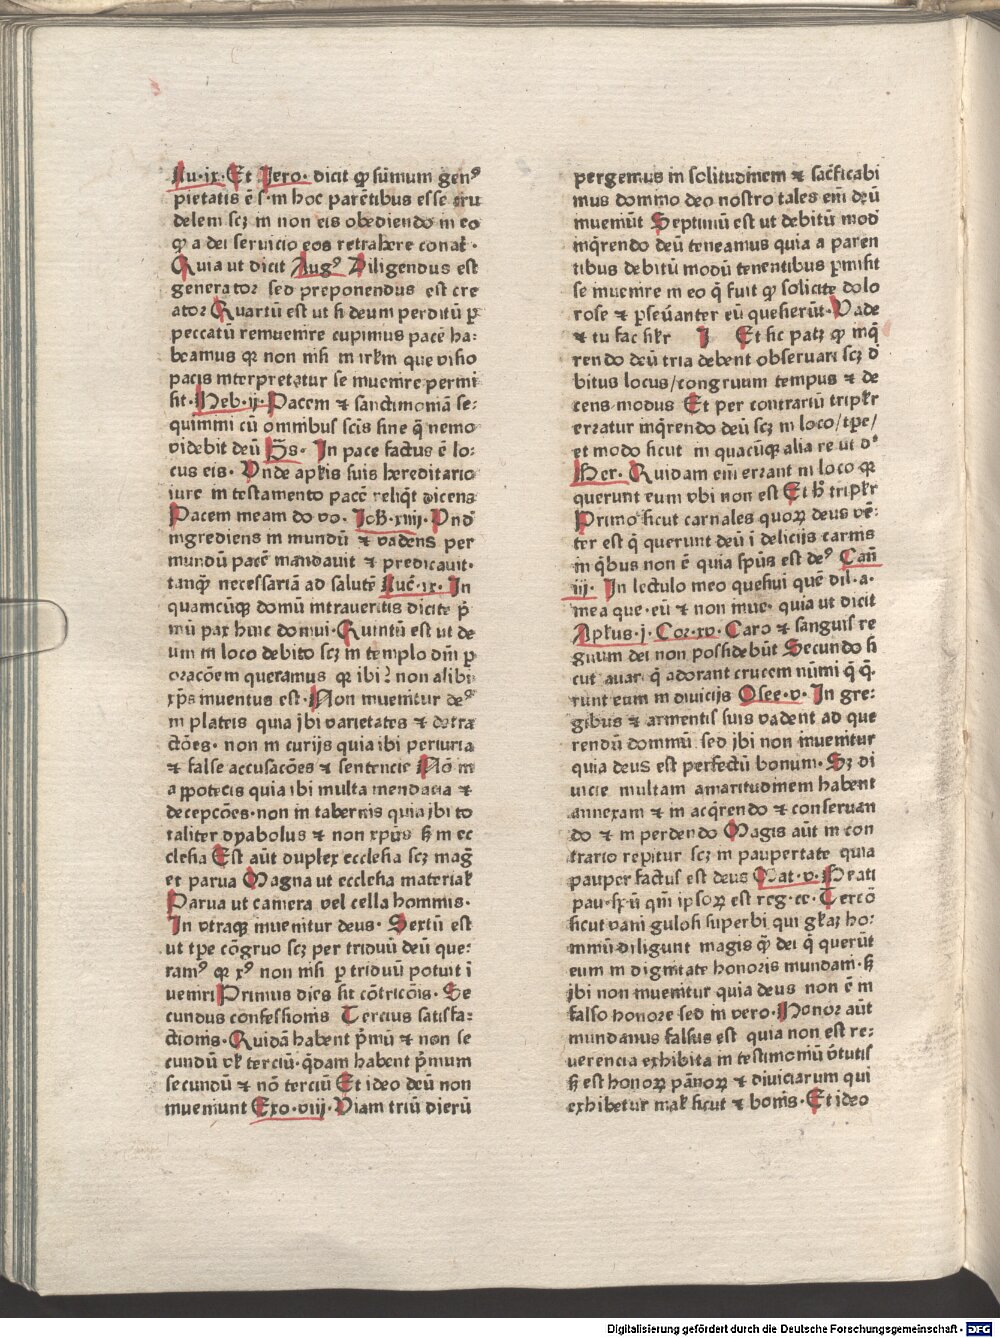 Lu·ix·Et Jero· dicit ꝙ sūmum genꝰ
pietatis ē si m hoc parētibus esse cru
delem scꝫ in non eis obediendo in eo
ꝙ a dei seruicio eos retrahere conat̄·
Quia ut dicit Augꝰ Diligendus est
generator sed preponendus est cre
ator Quartū est ut si deum perditū ꝑ
peccatū reinuenire cupimus pacē ha:
beamus qꝛ non nisi in irlm̄ que visio
pacis interpretatur se inuenire permi
sit·Heb·ij·Pacem ⁊ sanctimoniā se:
quimini cū omnibus scis sine q̄ nemo
videbit deū Ps· In pace factus ē lo:
cus eis· Vnde aplis suis hereditario
iure in testamento pacē reliq̄t dicens
Pacem meam do vo· Joh·xiiij·Vnd̄
ingrediens in mundū ⁊ vadens per
mundū pacē mandauit ⁊ predicauit·
tanꝗ̄ necessariā ad salutē Luc̄·ix·In
quamcūqꝫ domū intraueritis dicite p̄
mū pax huic domui·Quintū est ut de
um in loco debito scꝫ in templo dn̄i ꝑ
oracōem queramus qꝛ ibi ⁊ non alibi·
xp̄s inuentus est·Non inuenitur deꝰ
in plateis quia ibi varietates ⁊ detra
ctōes· non in curijs quia ibi periuria
⁊ false accusacōes ⁊ sentencie Nō in
appotecis quia ibi multa mendacia ⁊
decepcōes·non in tabernis quia ibi to
taliter dyabolus ⁊ non xpūs sꝫ in ec
clesia Est aūt duplex ecclesia scꝫ maḡ
et parua Magna ut ecclesia material̄
Parua ut camera vel cella hominis·
In vtraqꝫ inuenitur deus· Sextū est
ut tpe cōgruo scꝫ per triduū deū que:
ramꝰ qꝛ xꝰ non nisi ꝑ triduū potuit ī
ueniri Primus dies sit cōtricōis· Se
cundus confessionis Tercius satisfa:
ctionis·Quidā habent p̄mū ⁊ non se
cundū vl̄ terciū·q̄dam habent p̄mum
secundū ⁊ nō terciū Et ideo deū non
inueniunt Exo·viij·Viam triū dierū
pergemus in solitudinem ⁊ sac̄ficabi
mus domino deo nostro tales eni deū
inueniūt Septimū est ut debitū mod̄
inq̄rendo deū teneamus quia a paren
tibus debitū modū tenentibus ꝑmisit
se inuenire in eo q̄ fuit ꝙ solicite dolo
rose ⁊ ꝑseūanter eū quesierūt·Vade
⁊ tu fac silr I Et sic patꝫ ꝙ inq̄
rendo deū tria debent obseruari scꝫ d̄
bitus locus/congruum tempus ⁊ de
cens modus Et per contrariū triplr̄
erratur inq̄rendo deū scꝫ in loco/tpe/
et modo sicut in quacūqꝫ alia re ut dꝰ
Ber· Quidam eni errant in loco qꝛ
querunt eum vbi non est Et hͦ triplr̄
Primo sicut carnales quoꝝ deus vē:
ter est q̄ querunt deū ī delicijs carnis
in q̄bus non ē quia spūs est deꝰ Can̄
iij· In lectulo meo quesiui quē dil·a·
mea que·eū ⁊ non inue· quia ut dicit
Aplus·j·Cor·xv·Caro ⁊ sanguis re
gnum dei non possidebūt Secundo si
cut auari q̄ adorant crucem nūmi q̄ q̄·
runt eum in diuicijs Osee·v·In gre:
gibus ⁊ armentis suis vadent ad que
rendū dominū sed ibi non inuenitur
quia deus est perfectū bonum· Sꝫ di
uicie multam amaritudinem habent
annexam ⁊ in acq̄rendo ⁊ conseruan
do ⁊ in perdendo Magis aūt in con
trario repitur scꝫ in paupertate quia
pauper factus est deus Mat·v·Beati
pau·spū qm̄ ipsoꝝ est reg·ce·Terco
sicut vani gulosi superbi qui gl̄iaꝫ ho:
minū diligunt magis ꝗ̄ dei q̄ querūt
eum in dignitate honoris mundani·sꝫ
ibi non inuenitur quia deus non ē in
falso honore sed in vero·Honor aūt
mundanus falsus est quia non est re:
uerencia exhibita in testimoniū v̄tutis
sꝫ est honoꝝ pānoꝝ ⁊ diuiciarum qui
exhibetur mal̄ sicut ⁊ bonis·Et ideo
Digitalisierung gefördert durch die Deutsche Forschungsgemeinschaft - DFG